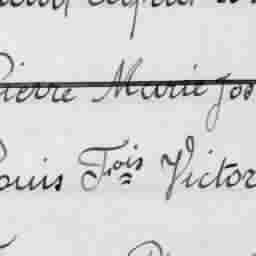 Pierre Marie Jos
Louis Fois Victor